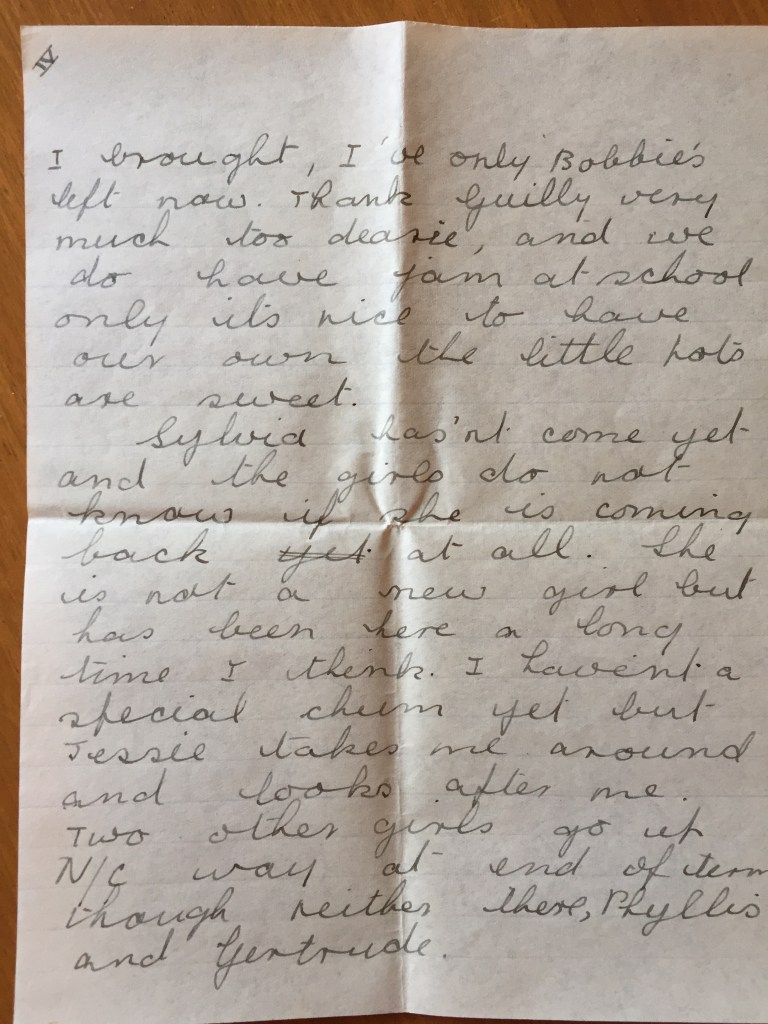 IV
I brought, I've only Bobbie's
left now. Thank Guilly very
much too dearie, and we
do have jam at school
only it's nice to have
our own the little pots
are sweet.
Sylvia has'nt come yet
and the girls do not
know if she is coming
back yet at all. She
is not a new girl but
has been here a long
time I think. I havent a
special chum yet but
Jessie takes me around
and looks after me.
Two other girls go up
N/C way at end of term
though neither there, Phyllis
and Gertrude.